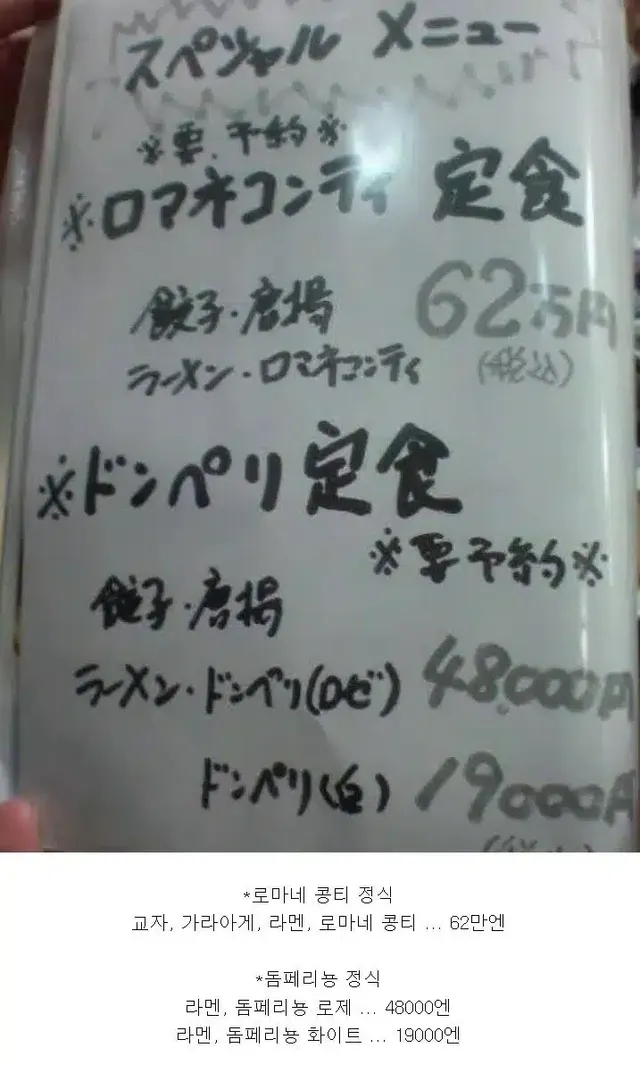 スペシャル メニュー
※要.予約※
※ロマネコンティ 定食
餃子・唐揚 62万円
ラーメン・ロマネコンティ (税込)
※ドンペリ定食
※要予約※
餃子・唐揚
ラーメン・ドンペリ(ロゼ) 48,000円
ドンペリ(白) 19000円
*로마네 콩티 정식
교자, 가라아게, 라멘, 로마네 콩티 ... 62만엔
*돔페리뇽 정식
라멘, 돔페리뇽 로제 ... 48000엔
라멘, 돔페리뇽 화이트 ... 19000엔